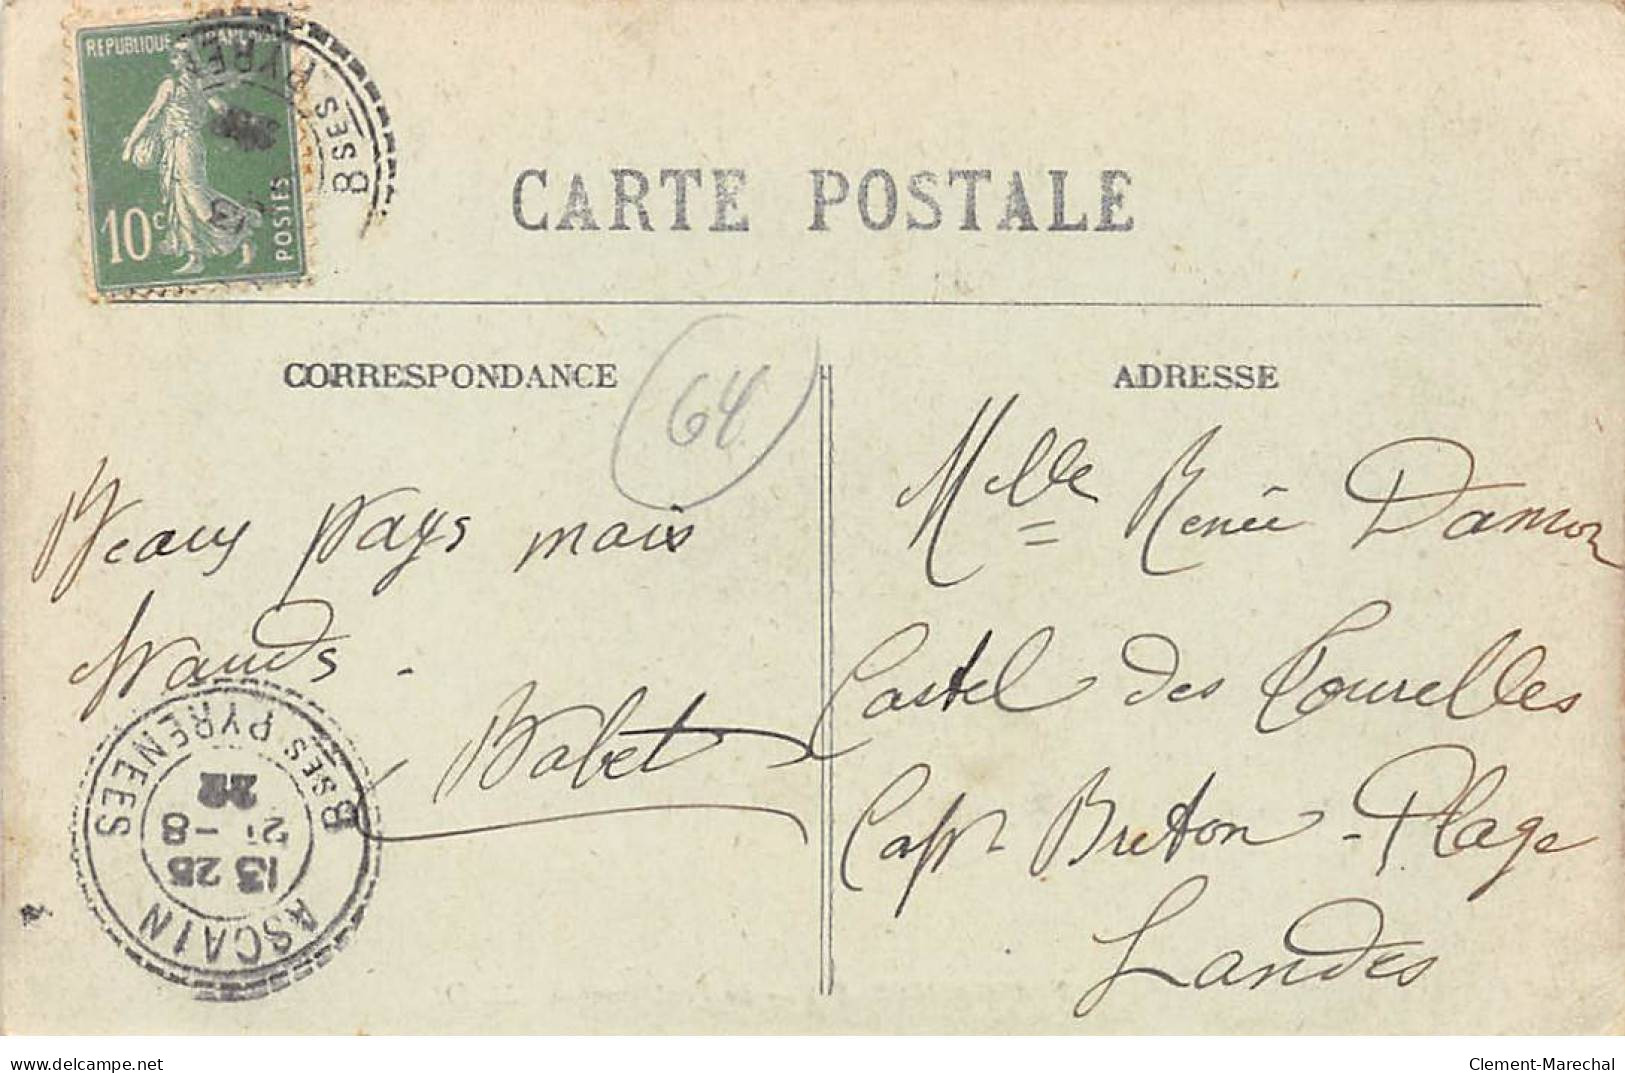 REPUBLIQUE FRANÇAISE
10c
POSTES
BSES PYRE
CARTE POSTALE
CORRESPONDANCE
64
ADRESSE
Beau pays mais
chauds.
Babet
Melle Renée Damon
Castel des Tourelles
Capp Breton - Plage
Landes
ASCAIN
13 25
21-8
22
BSES PYRENEES
delcampe.net
Clement-Marechal